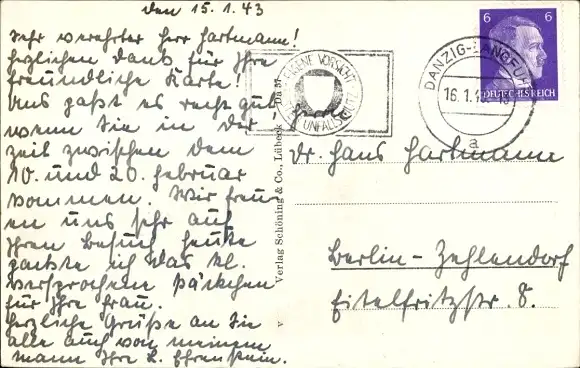 den 15.1.43
Sehr verehrter Herr Hartmann!
herzlichen Dank für Ihre
freundliche Karte!
Uns paßt es recht gut
wenn Sie in der
Zeit zwischen dem
10. und 20. Februar
kommen. Wir freu
en uns sehr auf
Ihren Besuch, heute
packte ich das kl.
versprochene Päckchen
für Ihre Frau.
herzliche Grüße an Sie
alle auch von meinem
Mann Ihre L. Ehrenstein.
Verlag Schöning & Co., Lübeck
EIGENE VORSICHT
UNFALLSCHUTZ
DANZIG-LANGFUHR
16.1.43
a
6 6
DEUTSCHES REICH
Herrn
Dr. Hans Hartmann
Berlin-Zehlendorf
Eitelfritzstr. 8.